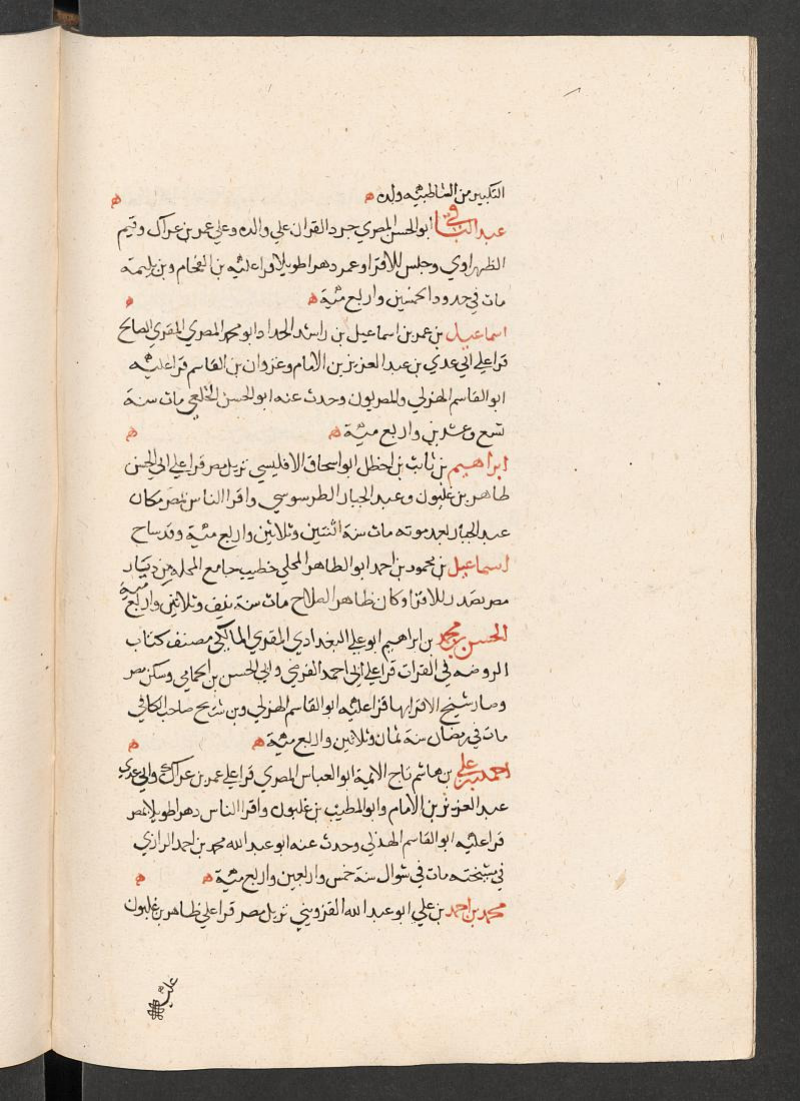 التكبير من الشاطبية وله
عبد الباقي ابو الحسن المصري جرد القران على والده وعلى عمر بن عراك وقيم
الظهراوي وجلس للاقرا وعمر دهرا طويلا قرا عليه بن الفحام وبن بليمة
مات في حدود الخمسين واربع مئية
اسماعيل بن عمر بن اسماعيل بن راشد الحداد ابو محمد المصري المقري الصالح
قرا على ابي عدي بن عبد العزيز بن الامام وغزوان بن القاسم قرا عليه
ابو القاسم الهذلي والمصريون وحدث عنه ابو الحسن الخلعي مات سنة
تسع وعشرين واربع مئية
ابراهيم بن ثابت بن اخطل ابو اسحاق الاقليسي نزيل مصر قرا على ابي الحسن
طاهر بن غلبون وعبد الجبار الطرسوسي واقرا الناس بمصر مكان
عبد الجبار بعد موته مات سنة اثنتين وثلاثين واربع مئية وقد ساح
اسماعيل بن محمود بن احمد ابو الطاهر المحلي خطيب جامع المحلة من ديار
مصر تصدر للاقرا وكان ظاهر الصلاح مات سنة نيف وثلاثين واربع مئية
الحسن بن محمد بن ابراهيم ابو علي البغدادي المقري المالكي مصنف كتاب
الروضه في القرات قرا على ابي احمد الفرضي وابي الحسن بن الحمامي وسكن مصر
وصار شيخ الاقرا بها قرا عليه ابو القاسم الهذلي وبن شريح صاحب الكافي
مات في رمضان سنة ثمان وثلاثين واربع مئية
احمد بن علي بن هاشم تاج الايمة ابو العباس المصري قرا على عمر بن عراك وابي عدي
عبد العزيز بن الامام وابو الطيب بن غلبون واقرا الناس دهرا طويلا بمصر
قرا عليه ابو القاسم الهذلي وحدث عنه ابو عبد الله محمد بن احمد الرازي
في مشيخته مات في شوال سنة خمس واربعين واربع مئية
محمد بن احمد بن علي ابو عبد الله القزويني نزيل مصر قرا على طاهر بن غلبون